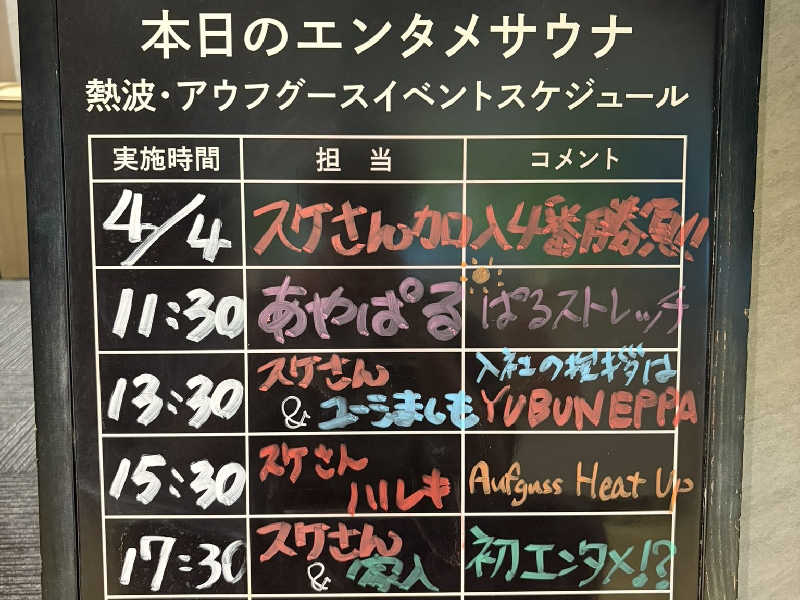 本日のエンタメサウナ
熱波・アウフグースイベントスケジュール
実施時間 担当 コメント
4/4 スケさん加入4番勝負!!
11:30 あやぱる ぱるストレッチ
13:30 スケさん & ユーシましも 入社の挨拶は YUBUNEPPA
15:30 スケさん ハルキ Aufguss Heat Up
17:30 スケさん & 初エンタメ!?